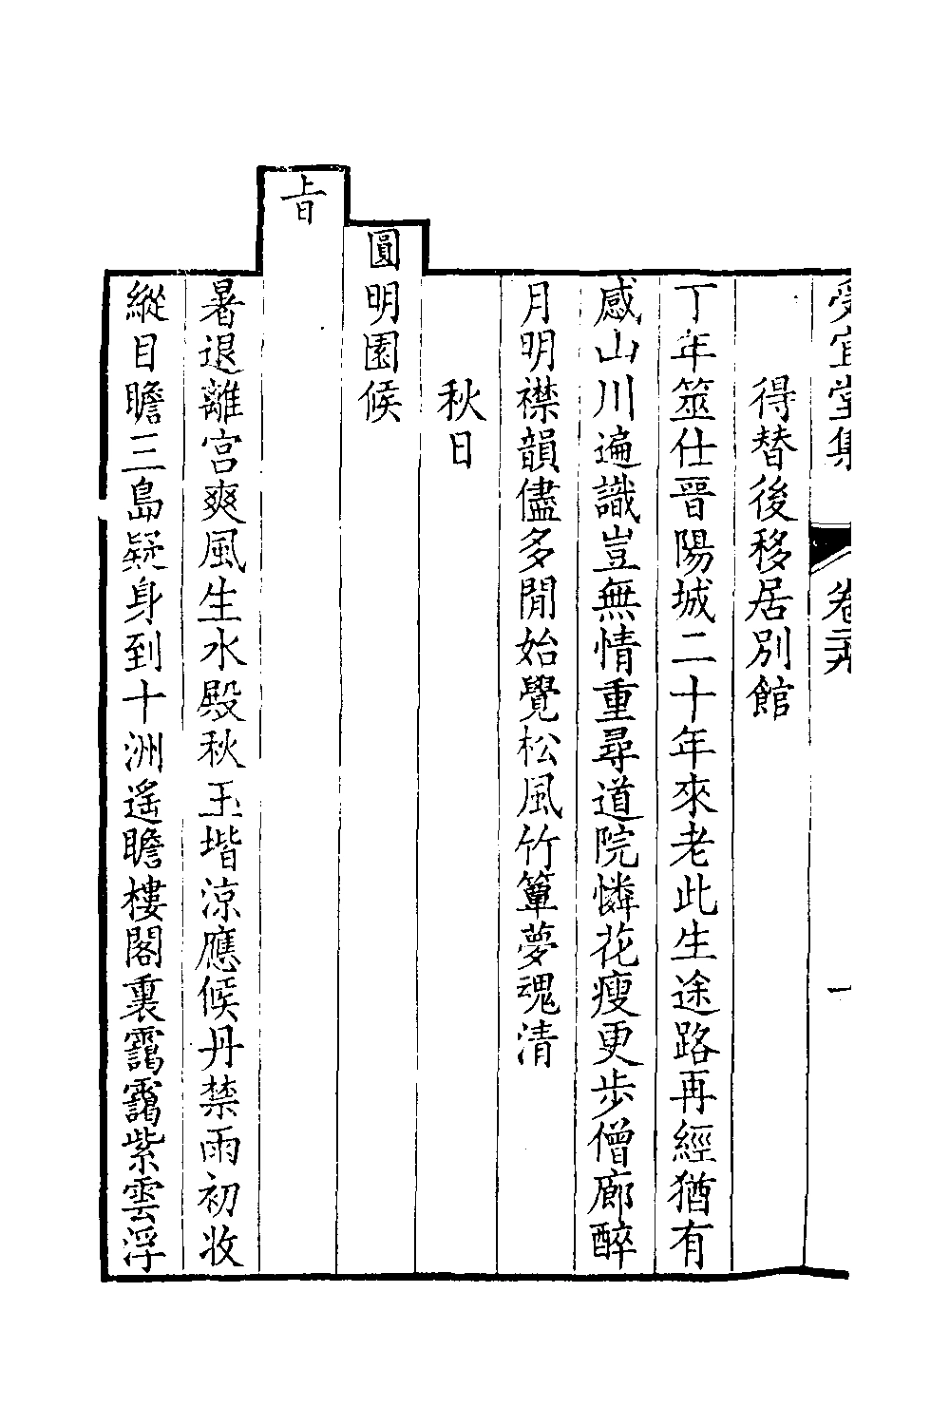 受宜堂集 卷二十九 一
得替後移居別館
丁年筮仕晉陽城二十年來老此生途路再經猶有
感山川遍識豈無情重尋道院憐花瘦更步僧廊醉
月明襟韻儘多閒始覺松風竹簟夢魂清
秋日
圓明園候
㫖
暑退離宮爽風生水殿秋玉堦涼應候丹禁雨初收
縱目瞻三島疑身到十洲遙瞻樓閣裏靄靄紫雲浮